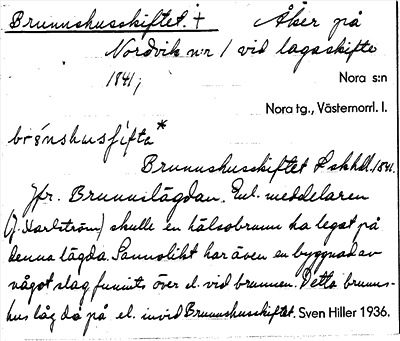 Brunnshusskiftet. † Åker på
Nordvik n:r 1 vid lagaskifte
1841,
Nora s:n
Nora tg., Västernorrl. l.
Brunnshusskiftet L skhdl. 1841.
Jfr. Brunnslägdan. Enl. meddelaren
(J. Harlström) skulle en hälsobrunn ha legat på
denna lägda. Sannolikt har även en byggnad av
något slag funnits över el. vid brunnen. Detta brunns-
hus låg då på el. invid Brunnshusskiftet. Sven Hiller 1936.